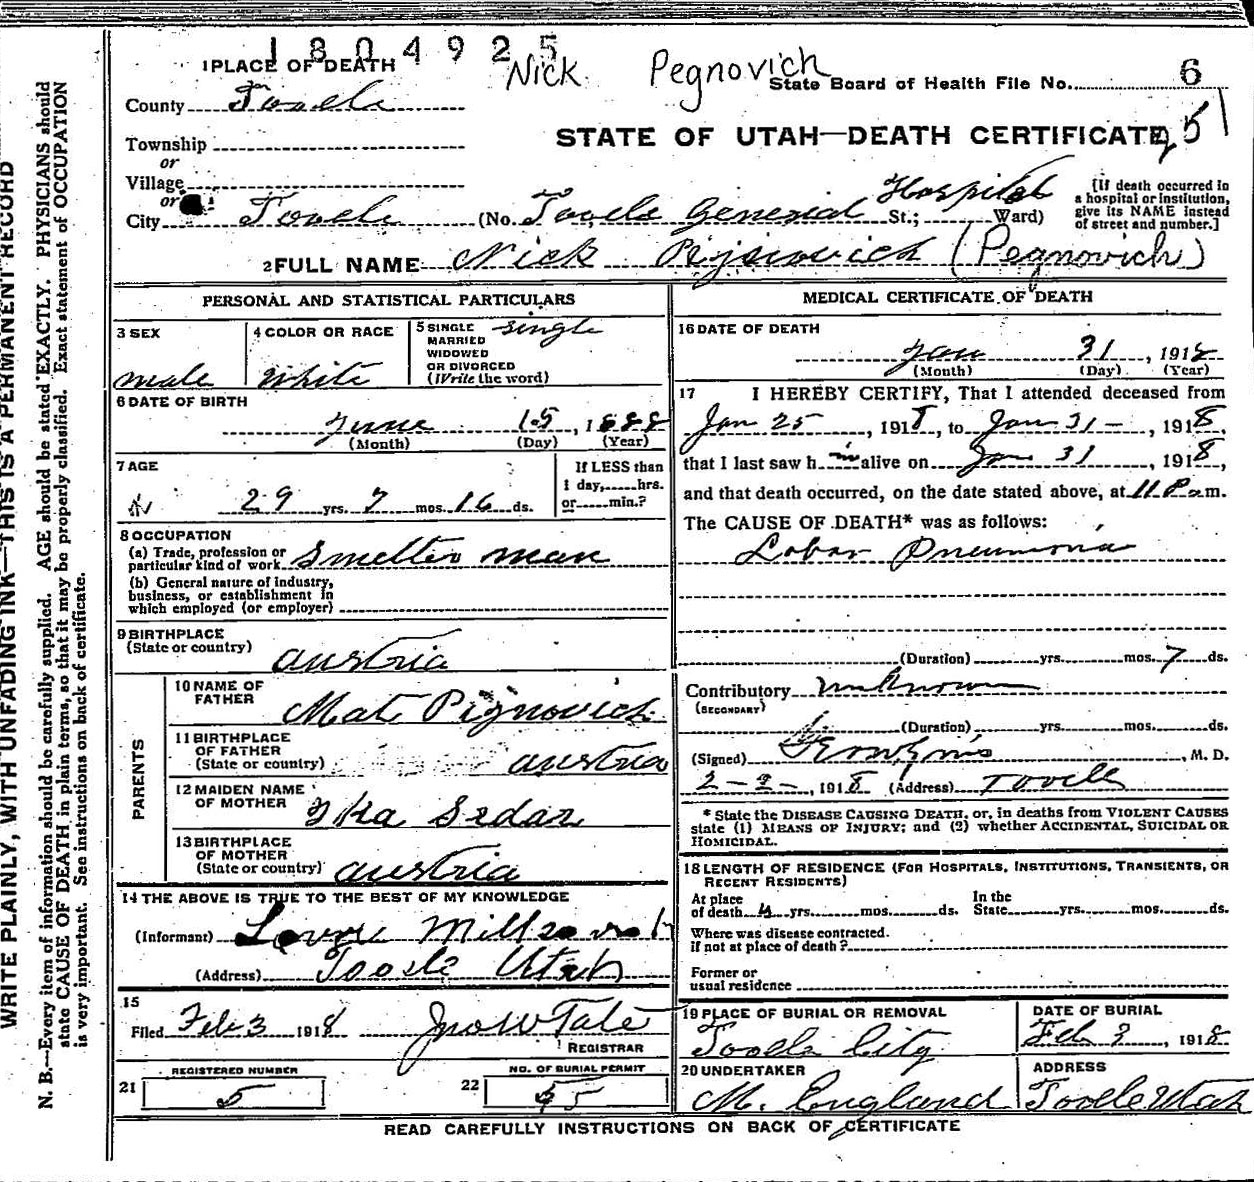 1804925
Nick Pegnovich
1 PLACE OF DEATH
State Board of Health File No. 6
County Tooele
STATE OF UTAH—DEATH CERTIFICATE
251
Township
or
Village
or
City Tooele (No. Tooele General Hospital St.; Ward)
[If death occurred in
a hospital or institution,
give its NAME instead
of street and number.]
2 FULL NAME Nick Pejnovich (Pegnovich)
PERSONAL AND STATISTICAL PARTICULARS
3 SEX
male
4 COLOR OR RACE
White
5 SINGLE
MARRIED
WIDOWED
OR DIVORCED
(Write the word)
single
6 DATE OF BIRTH
June 15, 1888
(Month) (Day) (Year)
7 AGE
29 yrs. 7 mos. 16 ds.
If LESS than
1 day,......hrs.
or......min.?
8 OCCUPATION
(a) Trade, profession or
particular kind of work Smelter man
(b) General nature of industry,
business, or establishment in
which employed (or employer)
9 BIRTHPLACE
(State or country)
Austria
PARENTS
10 NAME OF
FATHER
Mat Pignovich
11 BIRTHPLACE
OF FATHER
(State or country)
Austria
12 MAIDEN NAME
OF MOTHER
Ika Srdar
13 BIRTHPLACE
OF MOTHER
(State or country)
Austria
14 THE ABOVE IS TRUE TO THE BEST OF MY KNOWLEDGE
(Informant)
(Address) Tooele Utah
15
Filed Feb 3 1918 Jno W Tate
REGISTRAR
21
REGISTERED NUMBER
5
22
NO. OF BURIAL PERMIT
55
MEDICAL CERTIFICATE OF DEATH
16 DATE OF DEATH
Jan 31, 1918
(Month) (Day) (Year)
17 I HEREBY CERTIFY, That I attended deceased from
Jan 25, 1918, to Jan 31 -, 1918,
that I last saw h im alive on Jan 31, 1918,
and that death occurred, on the date stated above, at 11 P. m.
The CAUSE OF DEATH* was as follows:
Lobar Pneumona
(Duration) yrs. mos. 7 ds.
Contributory unknown
(SECONDARY)
(Duration) yrs. mos. ds.
(Signed) , M. D.
2-2-, 1918 (Address) Tooele
* State the DISEASE CAUSING DEATH, or, in deaths from VIOLENT CAUSES
state (1) MEANS OF INJURY; and (2) whether ACCIDENTAL, SUICIDAL OR
HOMICIDAL.
18 LENGTH OF RESIDENCE (FOR HOSPITALS, INSTITUTIONS, TRANSIENTS, OR
RECENT RESIDENTS)
At place In the
of death 4 yrs. mos. ds. State yrs. mos. ds.
Where was disease contracted.
if not at place of death?
Former or
usual residence
19 PLACE OF BURIAL OR REMOVAL
Tooele City
DATE OF BURIAL
Feb 3, 1918
20 UNDERTAKER
M. England
ADDRESS
Tooele Utah
READ CAREFULLY INSTRUCTIONS ON BACK OF CERTIFICATE
WRITE PLAINLY, WITH UNFADING INK—THIS IS A PERMANENT RECORD
N. B.—Every item of information should be carefully supplied. AGE should be stated EXACTLY. PHYSICIANS should
state CAUSE OF DEATH in plain terms, so that it may be properly classified. Exact statement of OCCUPATION
is very important. See instructions on back of certificate.